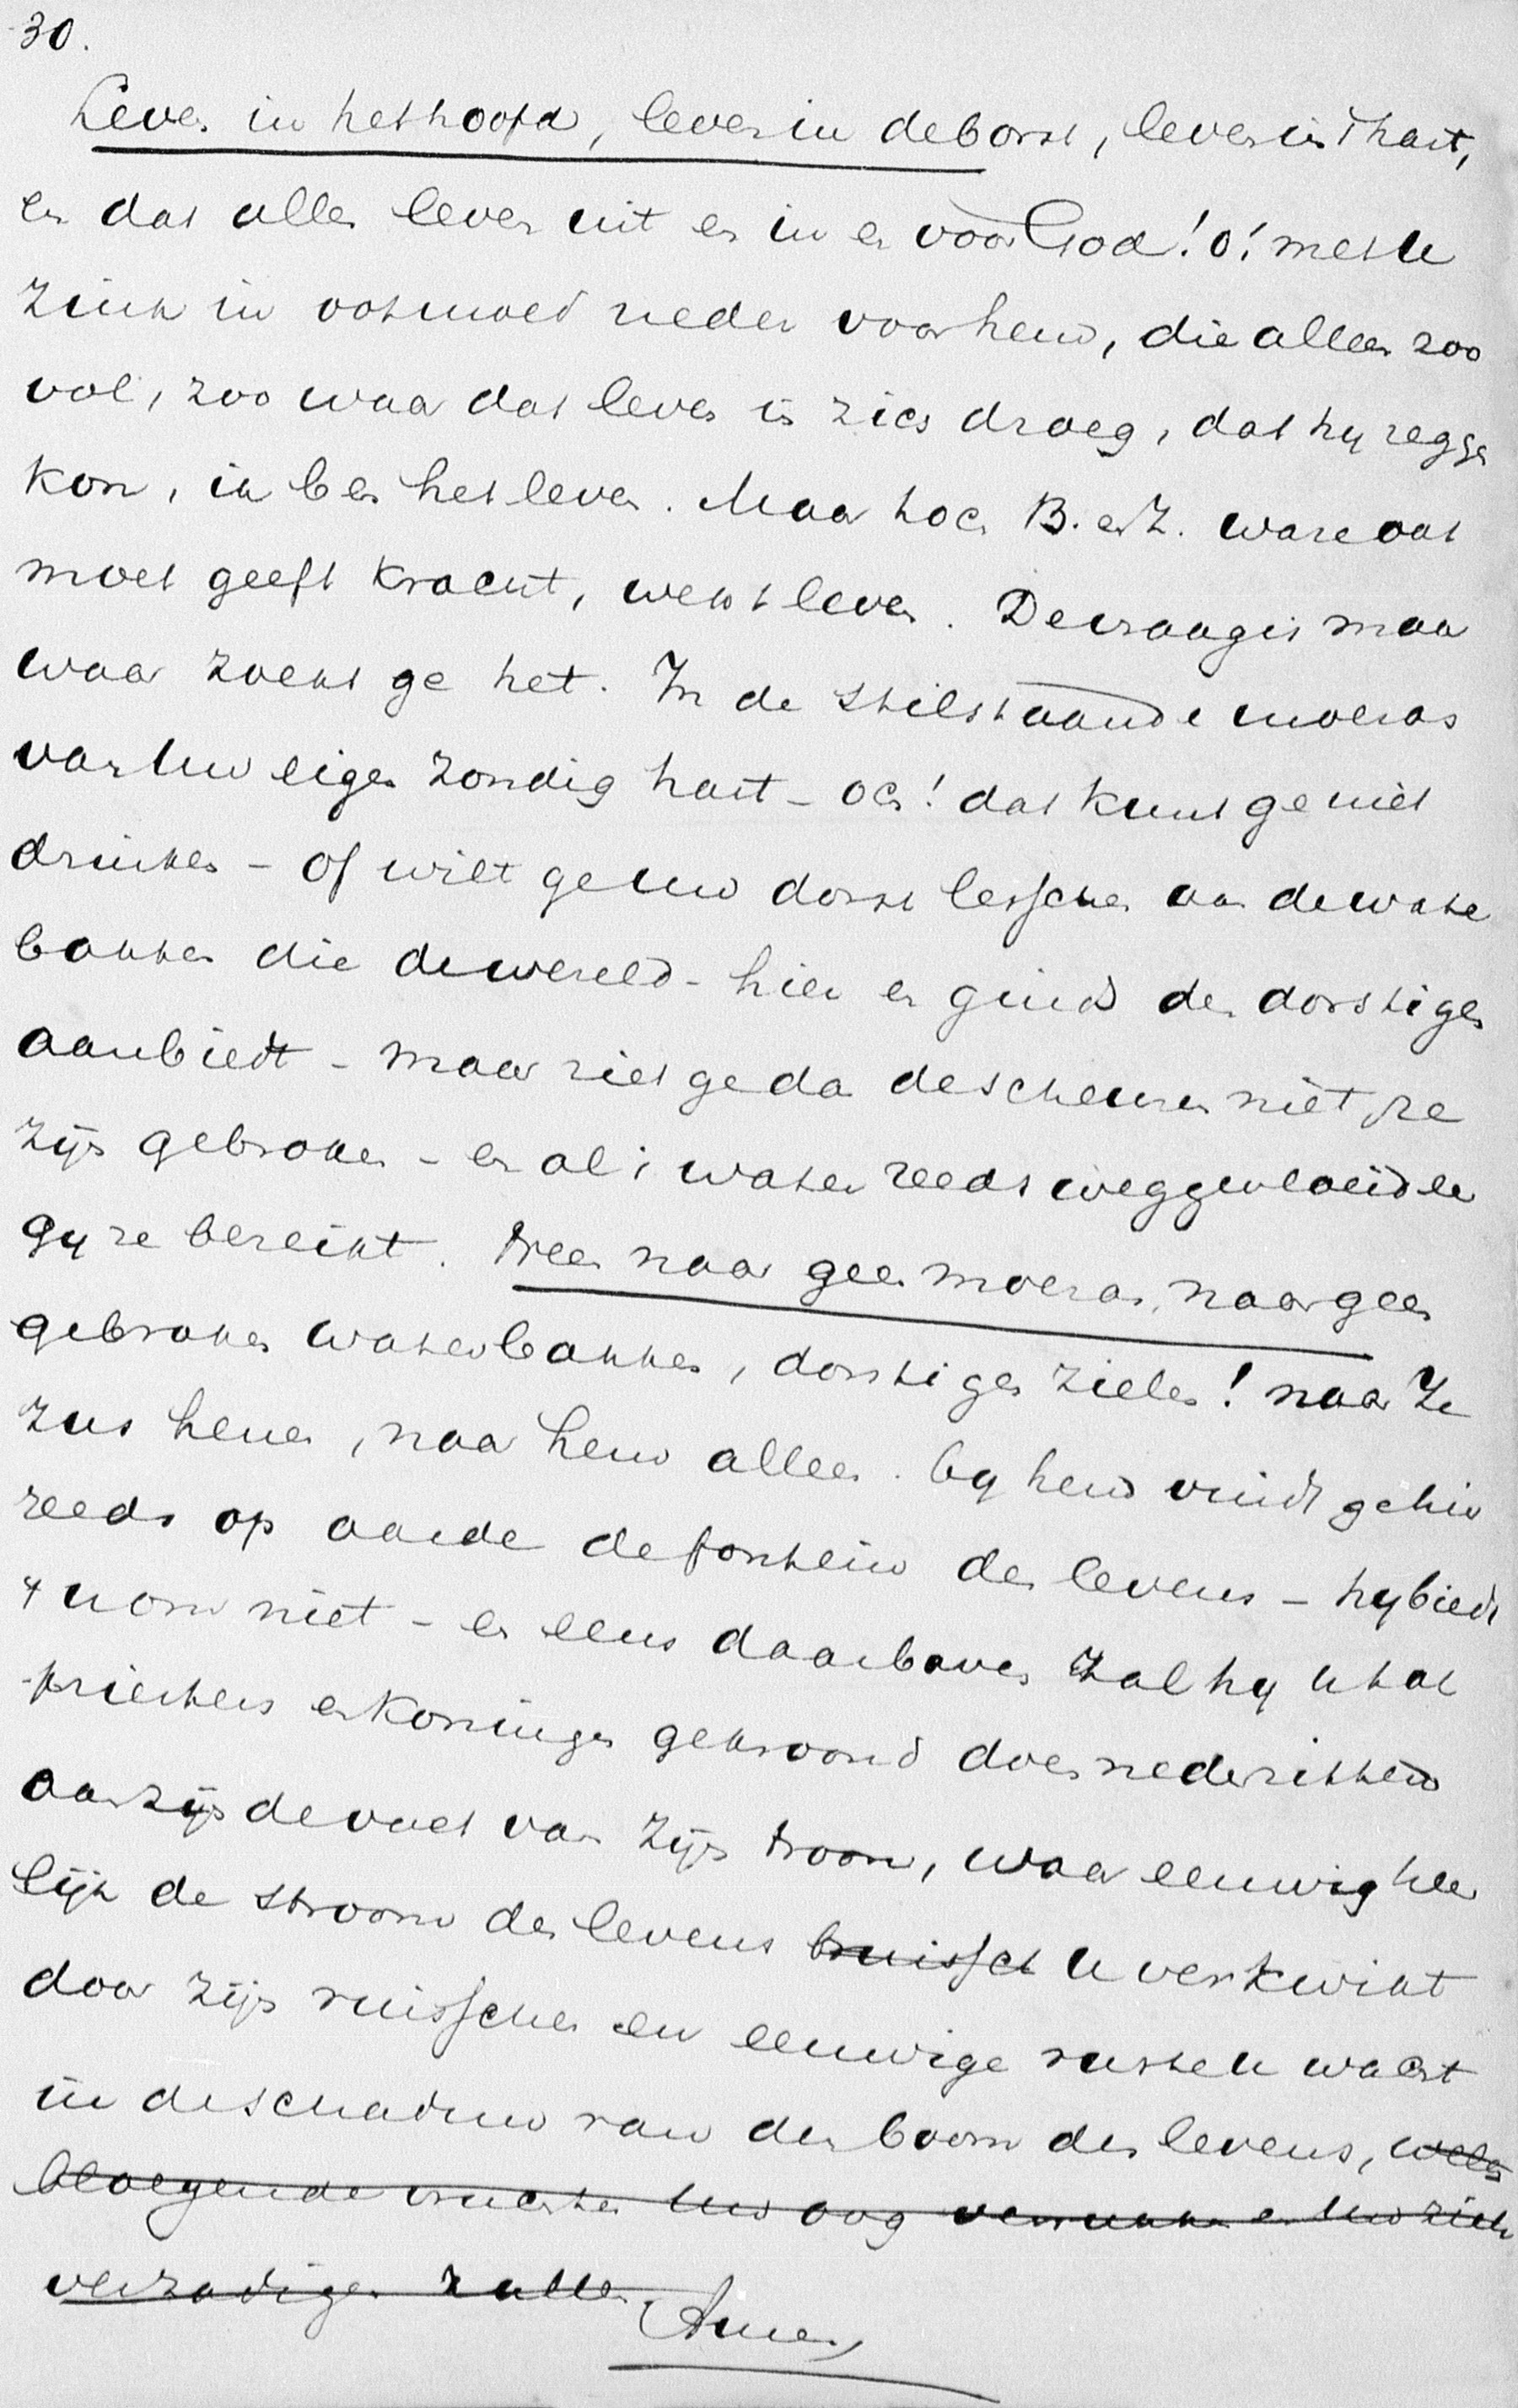 30.
Leven in het hoofd, leven in de borst, leven in 't hart,
en dat alles leven uit en in en voor God! o! met u
zink in ootmoed neder voor hem, die alleen zoo
vol, zoo waar dat leven in zich droeg, dat hy zeggen
kon, ik ben het leven. Maar toch B. en Z. ware oot
moed geeft kracht, wekt leven. De vraag is maar
waar zoekt ge het. In de stilstaande moeras
van Uw eigen zondig hart - och! dat kunt ge niet
drinken - of wilt ge uw dorst lesschen aan de water
bakken die de wereld - hier en ginds den dorstigen
aanbiedt - maar ziet ge dan de scheuren niet, ze
zijn gebroken - en al 't water reeds weggevloeid eer
gy ze bereikt. Neen naar geen moeras, naar geen
gebroken waterbakken, dorstigen zielen! naar Je
zus henen, naar hem alleen. by hem vindt ge hier
reeds op aarde de fontein des levens - hy biedt
't U om niet - en eens daarboven zal hy U tot
priesters en koningen gekroond doen nederzitten
aan zijn de voet van zijn troon, waar eeuwig hel
lijk de stroom des levens bruisscht U verkwikt
door zijn ruisschen en eeuwige rust u wacht
in de schaduw van den boom des levens, welks
bloeyende vruchten Uw oog verrukken en Uw ziel
verzadigen zullen.
Amen